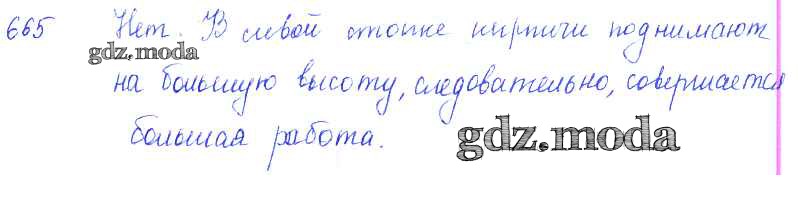 665 Нет. В левой стопке кирпичи поднимают
gdz.moda
на большую высоту, следовательно, совершается
большая работа.
gdz.moda